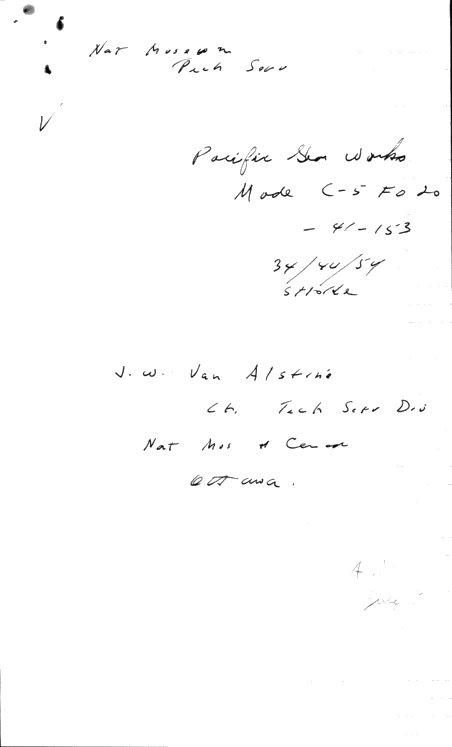 Nat Museum
Tech Serv
V
Pacific Gear Works
Mode C-5 FO 20
- 41-153
34/44/54
stroke
J. W. Van Alstine
Ch. Tech Serv Div
Nat Mus of Canada
Ottawa.